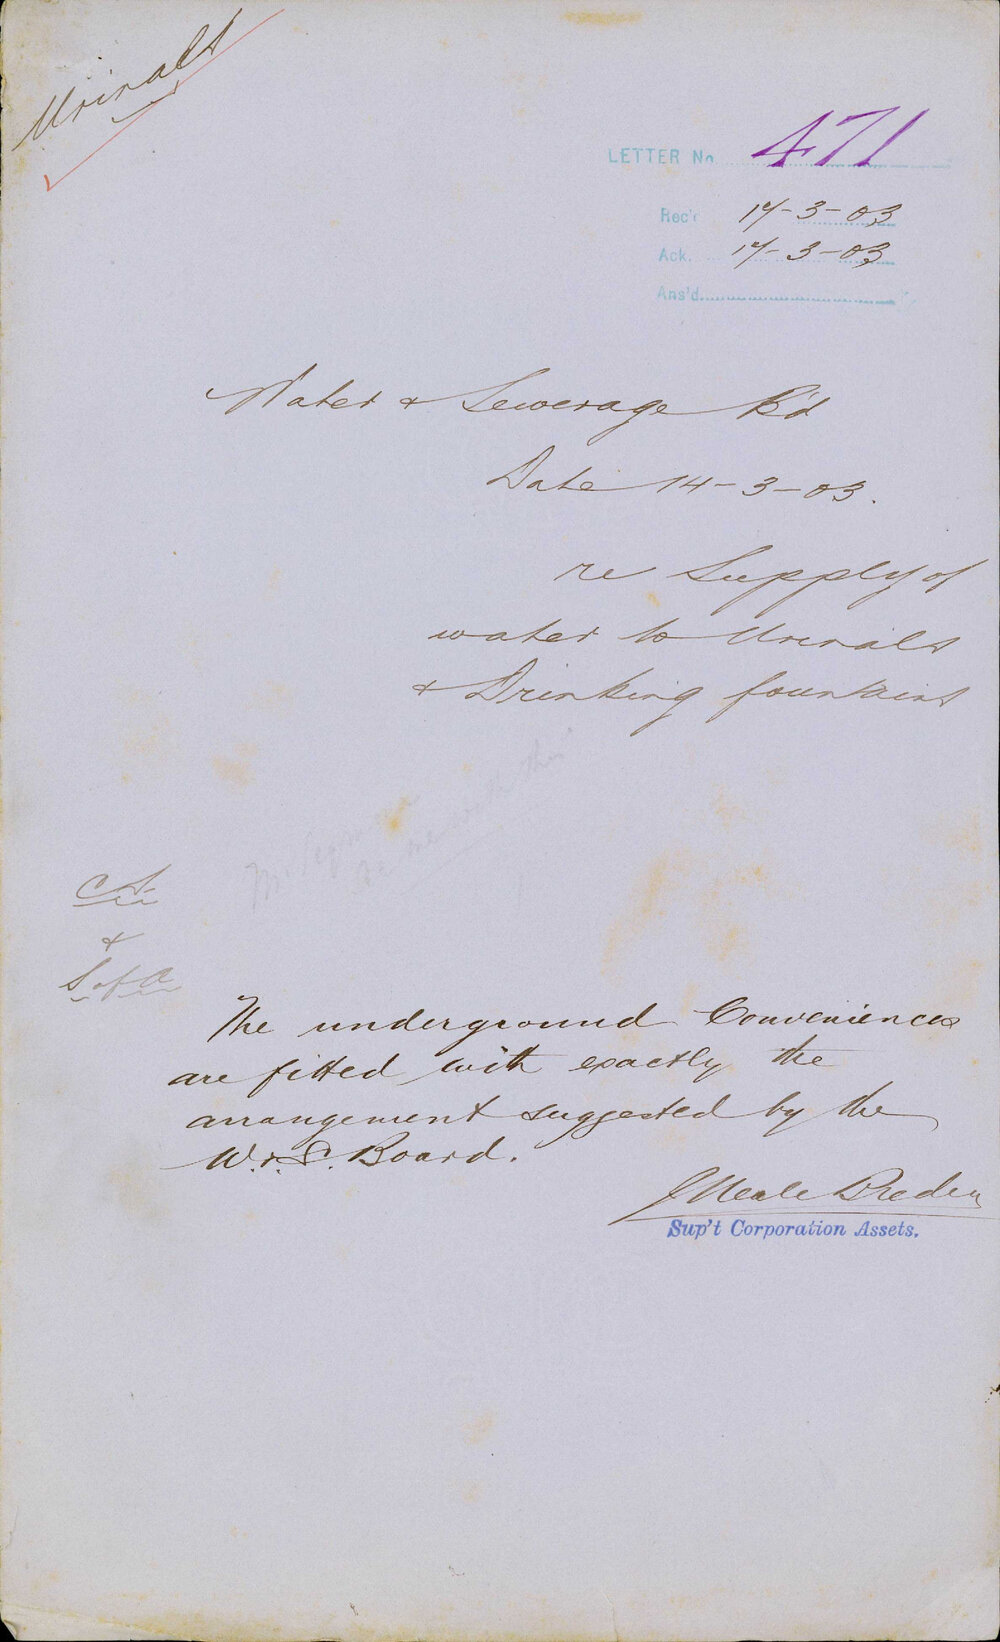 Urinals
LETTER No 471
Rec'd 17-3-03
Ack. 17-3-03
Ans'd
Water & Sewerage B'd
Date 14-3-03.
re Supply of
water to Urinals
& Drinking fountains
Mr
me with this
&
S of A
The underground Conveniences
are fitted with exactly the
arrangement suggested by the
W. & S. Board.
J Neale Breden
Sup't Corporation Assets.